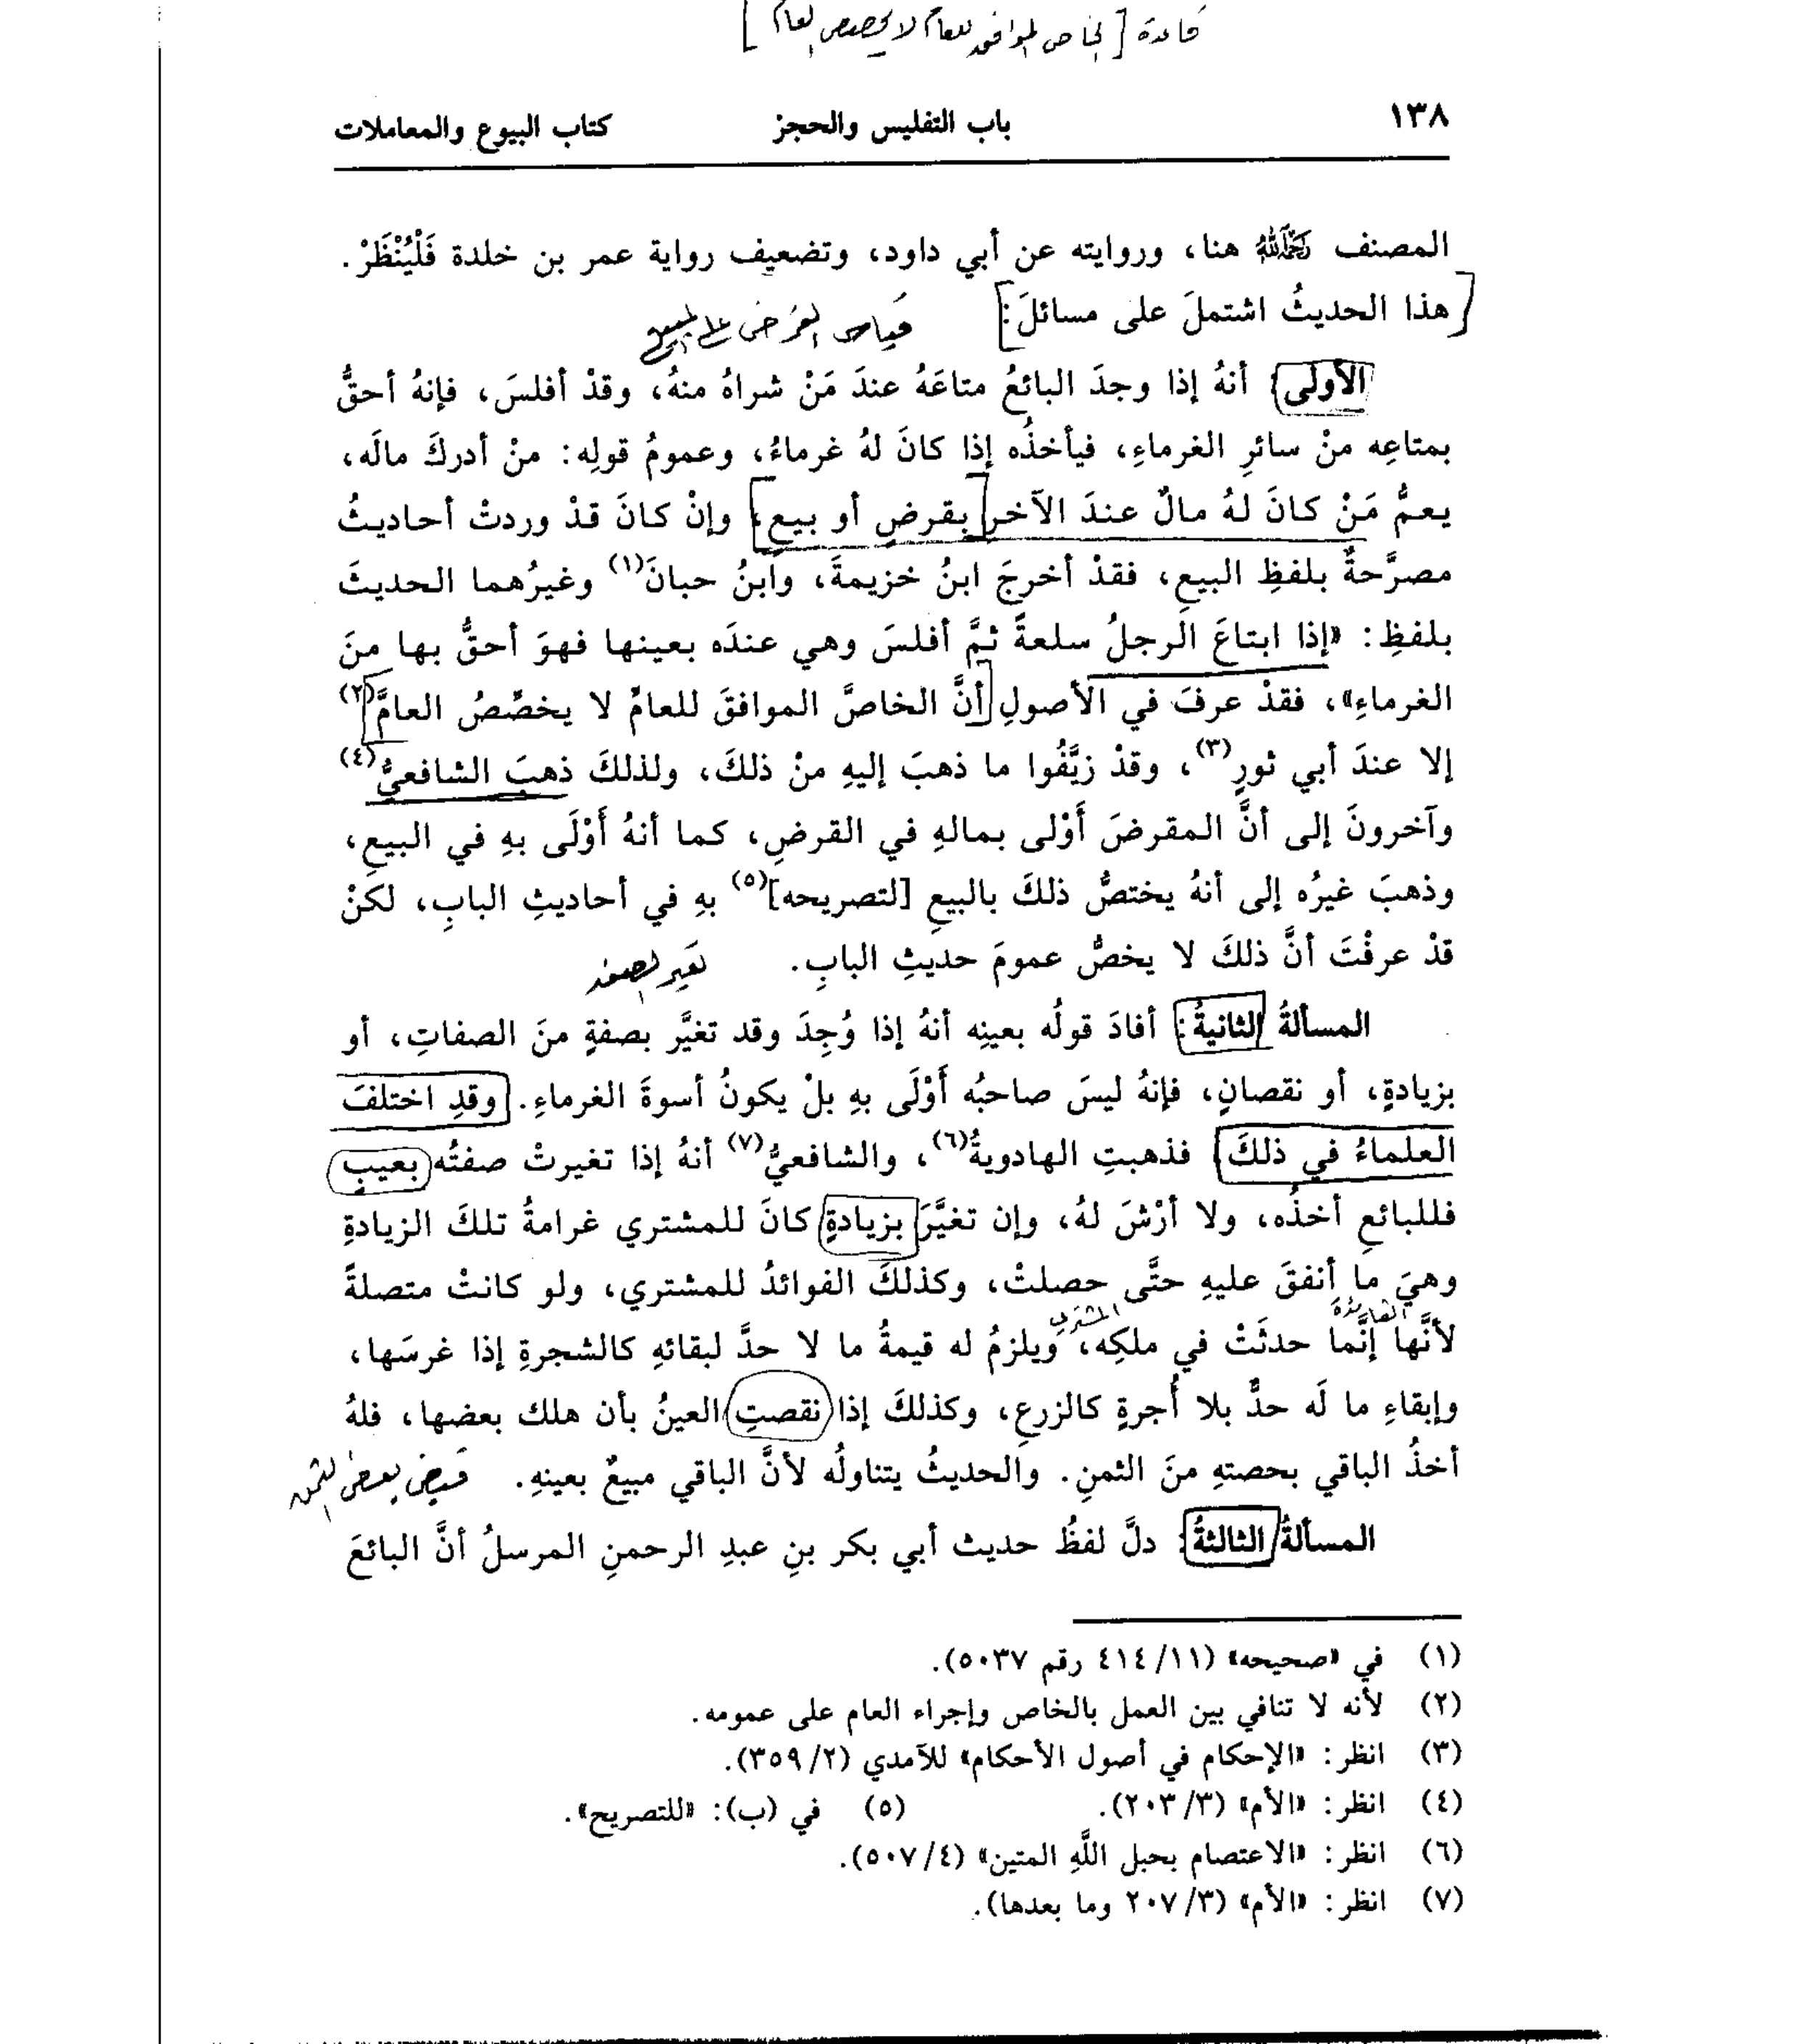 قاعدة [الخاص الموافق للعام لا يخصص العام]
١٣٨ باب التفليس والحجز كتاب البيوع والمعاملات
المصنف رَحِمَهُ اللهُ هنا، وروايته عن أبي داود، وتضعيف رواية عمر بن خلدة فَلْيُنْظَرْ.
هذا الحديثُ اشتملَ على مسائلَ: قياس القرض على البيع
الأولى: أنهُ إذا وجدَ البائعُ متاعَهُ عندَ مَنْ شراهُ منهُ، وقدْ أفلسَ، فإنهُ أحقُّ
بمتاعِه منْ سائرِ الغرماءِ، فيأخذُه إذا كانَ لهُ غرماءُ، وعمومُ قولِه: منْ أدركَ مالَه،
يعمُّ مَنْ كانَ لهُ مالٌ عندَ الآخرِ بقرضٍ أو بيعٍ، وإنْ كانَ قدْ وردتْ أحاديثُ
مصرَّحةٌ بلفظِ البيعِ، فقدْ أخرجَ ابنُ خزيمةَ، وابنُ حبانَ(١) وغيرُهما الحديثَ
بلفظِ: «إذا ابتاعَ الرجلُ سلعةً ثمَّ أفلسَ وهي عندَه بعينها فهوَ أحقُّ بها منَ
الغرماءِ»، فقدْ عرفَ في الأصولِ أنَّ الخاصَّ الموافقَ للعامِّ لا يخصِّصُ العامَّ(٢)
إلا عندَ أبي ثورٍ(٣)، وقدْ زيَّفُوا ما ذهبَ إليهِ منْ ذلكَ، ولذلكَ ذهبَ الشافعيُّ(٤)
وآخرونَ إلى أنَّ المقرضَ أَوْلى بمالهِ في القرضِ، كما أنهُ أَوْلَى بهِ في البيعِ،
وذهبَ غيرُه إلى أنهُ يختصُّ ذلكَ بالبيعِ [لتصريحه](٥) بهِ في أحاديثِ البابِ، لكنْ
قدْ عرفْتَ أنَّ ذلكَ لا يخصُّ عمومَ حديثِ البابِ. تغير الصفة
المسألةُ الثانيةُ: أفادَ قولُه بعينِه أنهُ إذا وُجِدَ وقد تغيَّر بصفةٍ منَ الصفاتِ، أو
بزيادةٍ، أو نقصانٍ، فإنهُ ليسَ صاحبُه أَوْلَى بهِ بلْ يكونُ أسوةَ الغرماءِ. وقدِ اختلفَ
العلماءُ في ذلكَ فذهبتِ الهادويةُ(٦)، والشافعيُّ(٧) أنهُ إذا تغيرتْ صفتُه بعيبٍ
فللبائعِ أخذُه، ولا أرْشَ لهُ، وإن تغيَّرَ بزيادةٍ كانَ للمشتري غرامةُ تلكَ الزيادةِ
وهيَ ما أنفقَ عليهِ حتَّى حصلتْ، وكذلكَ الفوائدُ للمشتري، ولو كانتْ متصلةً
الفائدة المشتري
لأنَّها إنَّما حدثَتْ في ملكِه، ويلزمُ له قيمةُ ما لا حدَّ لبقائهِ كالشجرةِ إذا غرسَها،
وإبقاءِ ما لَه حدٌّ بلا أُجرةٍ كالزرعِ، وكذلكَ إذا نقصتِ العينُ بأن هلك بعضها، فلهُ
أخذُ الباقي بحصتهِ منَ الثمنِ. والحديثُ يتناولُه لأنَّ الباقي مبيعٌ بعينهِ. قبض بعض الثمن
المسألةُ الثالثةُ: دلَّ لفظُ حديث أبي بكر بنِ عبدِ الرحمنِ المرسلُ أنَّ البائعَ
(١) في «صحيحه» (١١/ ٤١٤ رقم ٥٠٣٧).
(٢) لأنه لا تنافي بين العمل بالخاص وإجراء العام على عمومه.
(٣) انظر: «الإحكام في أصول الأحكام» للآمدي (٢/ ٣٥٩).
(٤) انظر: «الأم» (٣/ ٢٠٣). (٥) في (ب): «للتصريح».
(٦) انظر: «الاعتصام بحبل اللَّهِ المتين» (٤/ ٥٠٧).
(٧) انظر: «الأم» (٣/ ٢٠٧ وما بعدها).